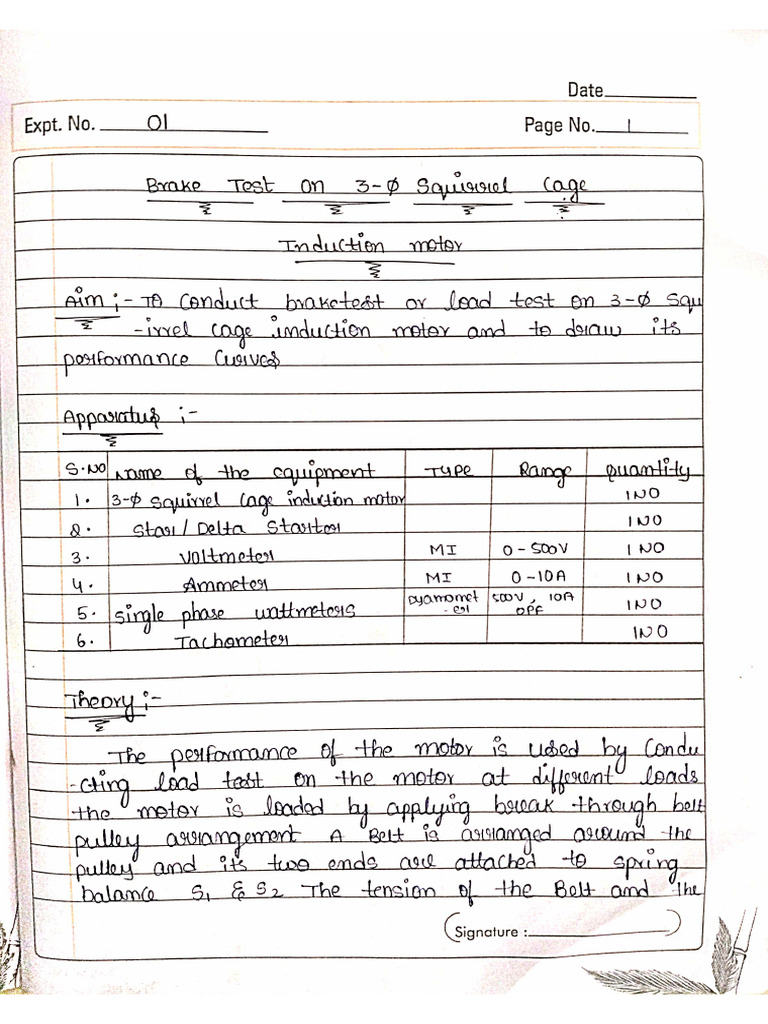 Date
Expt. No. 01
Page No. 1
Brake Test on 3-Ø Squirrel Cage
Induction motor
Aim :- To conduct braketest or load test on 3-Ø Squ
-irrel cage induction motor and to draw its
performance Curves
Apparatus :-
S.NO Name of the equipment TYPE Range Quantity
1. 3-Ø Squirrel Cage induction motor 1NO
2. Star/Delta Starter 1NO
3. Voltmeter MI 0-500V 1NO
4. Ammeter MI 0-10A 1NO
5. Single phase wattmeters Dyamomet-er 500V, 10A OPF 1NO
6. Tachometer 1NO
Theory :-
The performance of the motor is used by Condu
-cting load test on the motor at different loads
the motor is loaded by applying break through belt
pulley arrangement A Belt is arranged around the
pulley and its two ends are attached to spring
balance S1 & S2 The tension of the Belt and the
Signature :